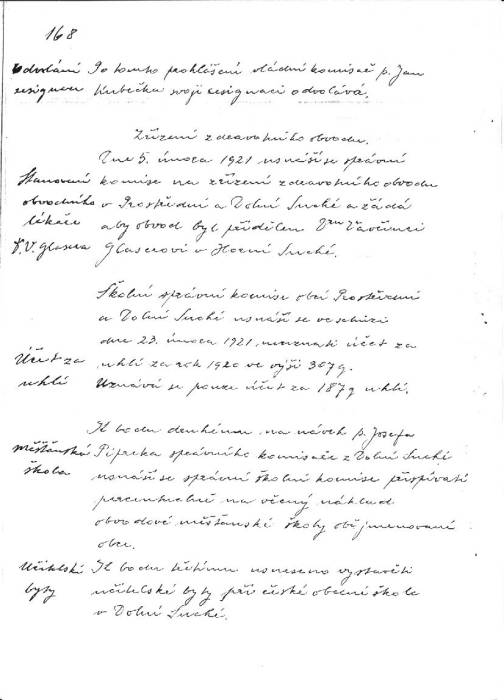 168
odvolání Po tomto prohlášení vládní komisař p. Jan
resignace Kubečka svoji resignaci odvolává.
Zřízení zdravotního obvodu.
Dne 5. února 1921 usnáší se správní
Stanovení komise na zřízení zdravotního obvodu
obvodního v Prostřední a Dolní Suché a žádá
lékaře aby obvod byl přidělen Dru Vavřinci
Dr. V. Glasera Glaserovi v Horní Suché.
Školní správní komise obcí Prostřední
a Dolní Suché usnáší se ve schůzi
dne 23. února 1921, neuznati účet za
Účet za uhlí za rok 1920 ve výši 307 q.
uhlí Uznává se pouze účet za 187 q uhlí.
K bodu druhému na návrh p. Josefa
Měšťanská Pifreka správního komisaře z Dolní Suché
škola usnáší se správní školní komise přispívati
percentuelně na věcný náklad
obvodové měšťanské školy obě jmenované
obce.
Učitelské K bodu třetímu usneseno vystavěti
byty učitelské byty při české obecné škole
v Dolní Suché.